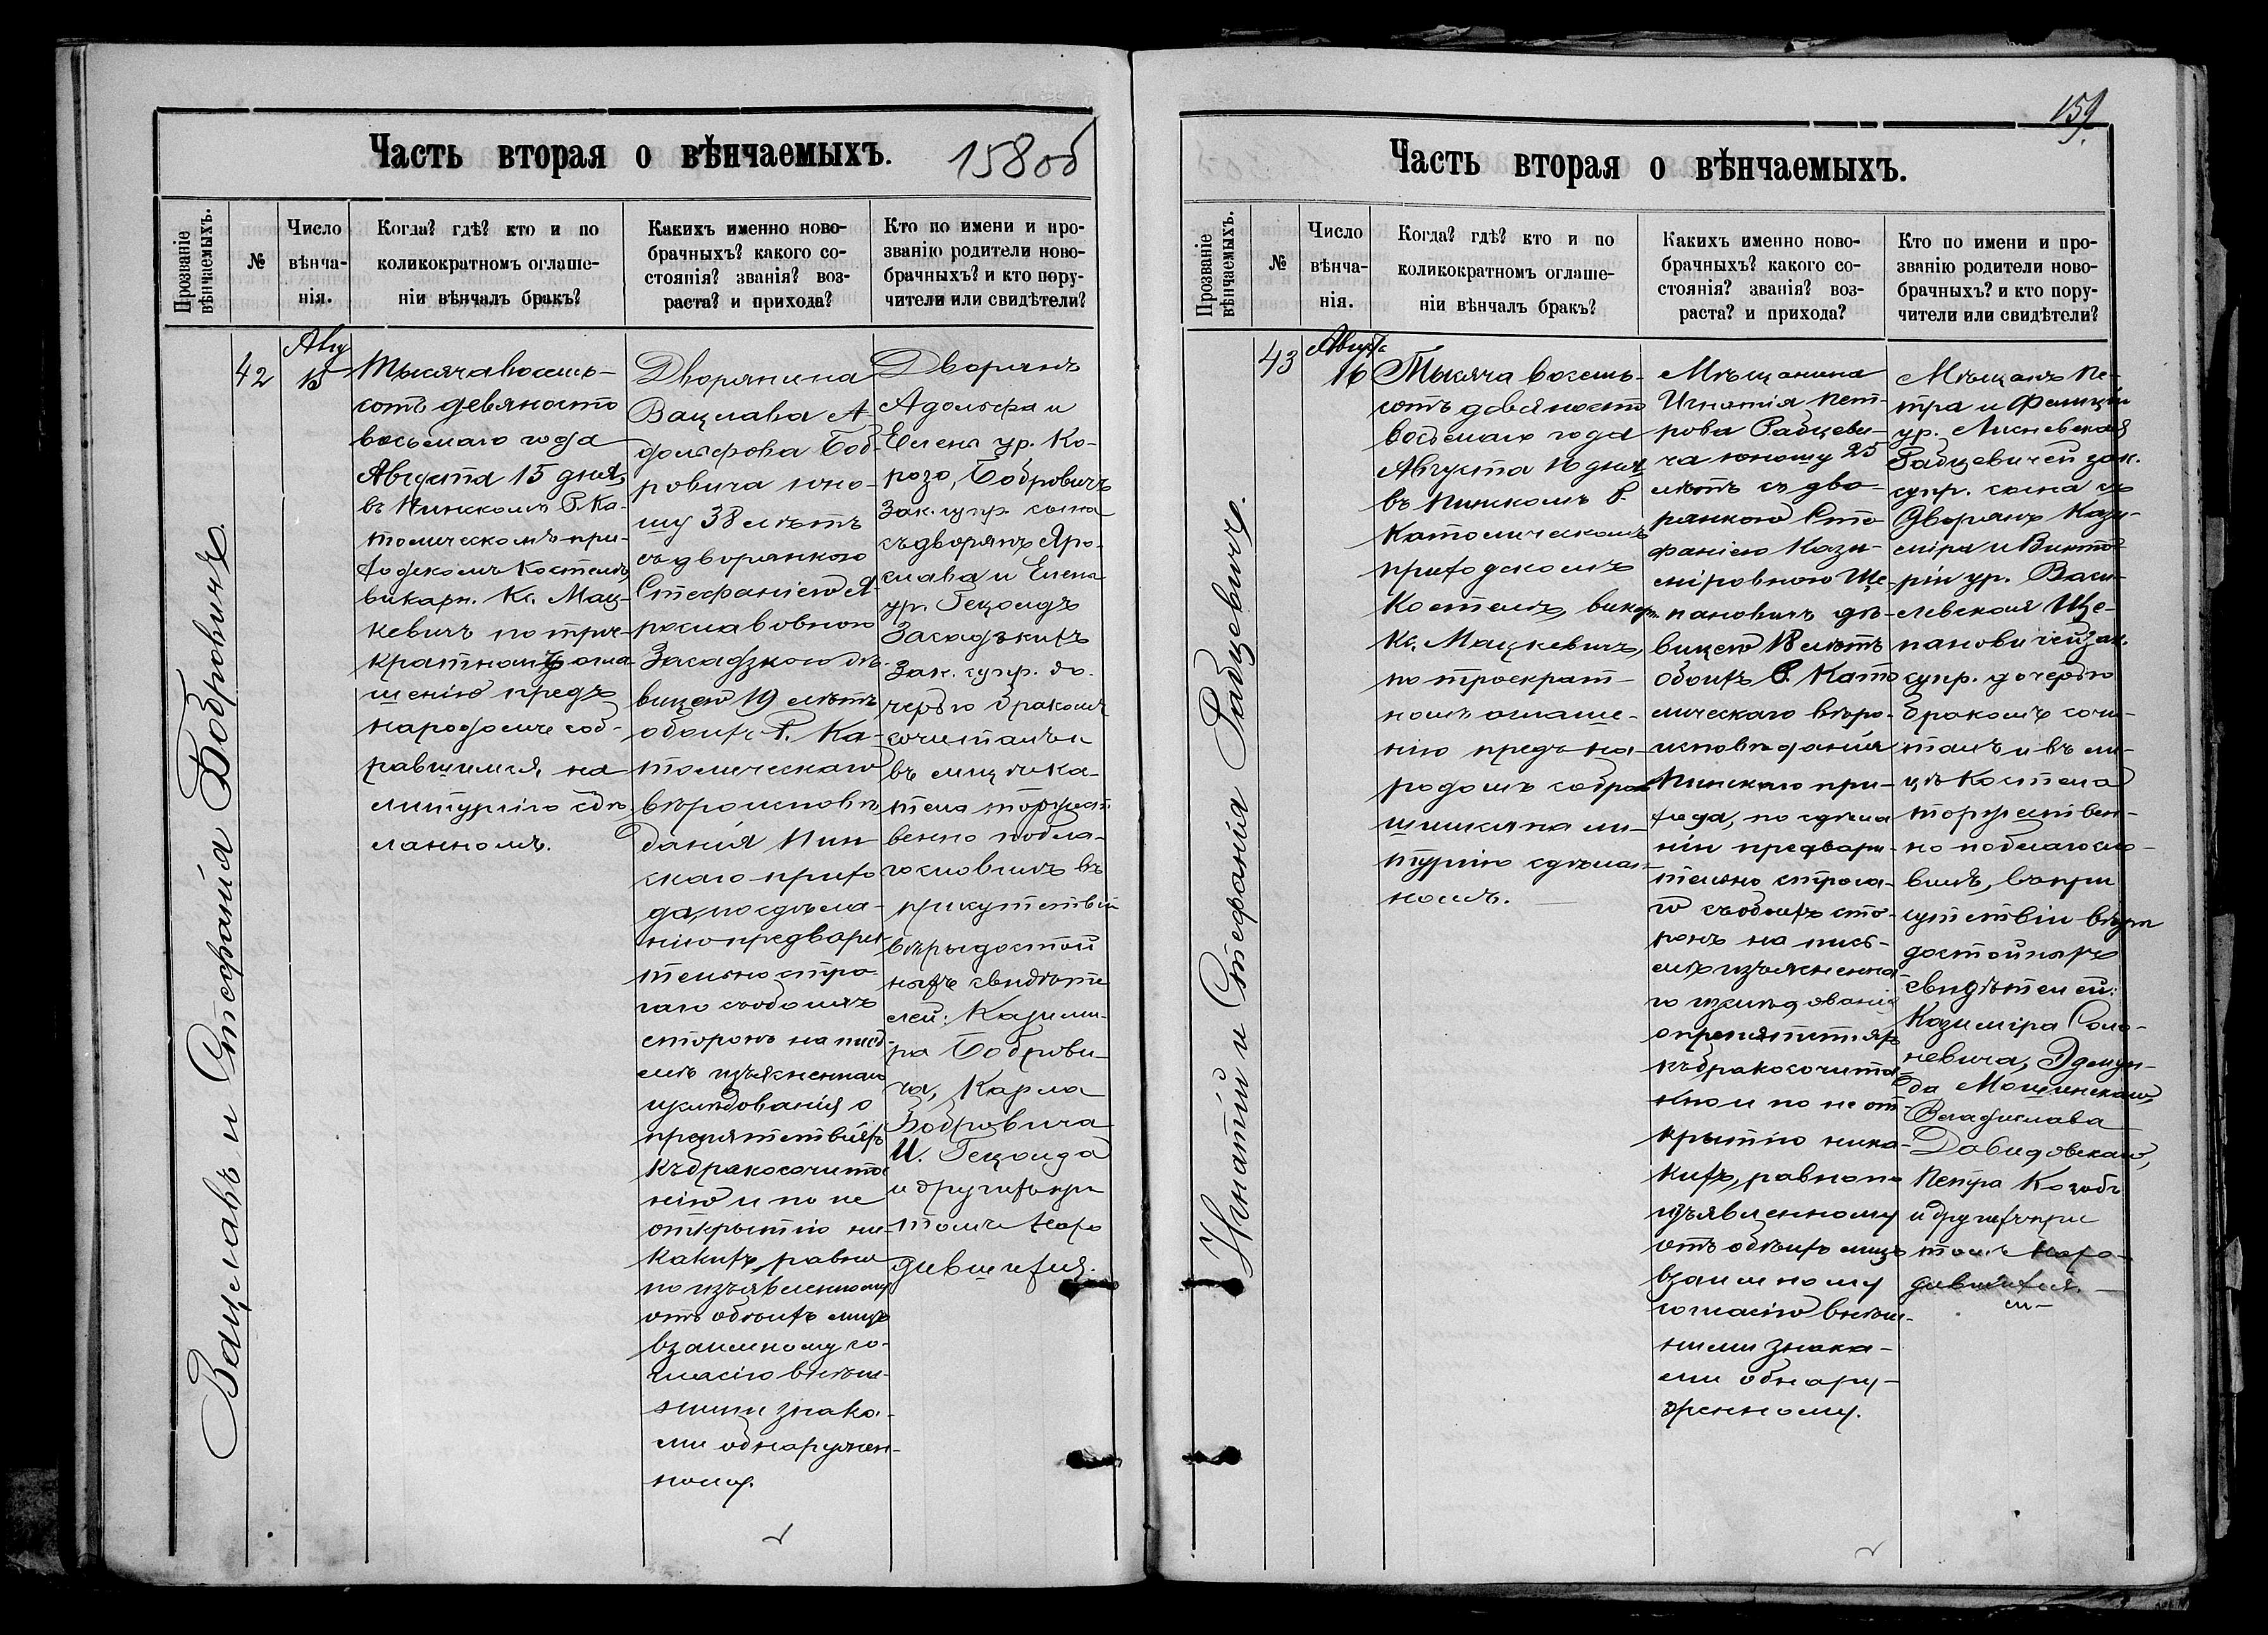 Часть вторая о вѣнчаемыхъ.
158 об
Прозваніе вѣнчаемыхъ.
№
Число вѣнча-нія.
Когда? гдѣ? кто и по
коликократномъ оглаше-
ніи вѣнчалъ бракъ?
Какихъ именно ново-
брачныхъ? какого со-
стоянія? званія? воз-
раста? и прихода?
Кто по имени и про-
званію родители ново-
брачныхъ? и кто пору-
чители или свидѣтели?
Вацлавъ и Стефанія Бобровичъ.
42
Авгу
15
Тысяча восемь-
сотъ девяносто
восьмаго года
Августа 15 дня,
въ Пинскомъ Р. Ка-
толическомъ при-
ходскомъ костелѣ
викарн. Кс. Мац-
кевичъ по трие-
кратному огла-
шенію предъ
народомъ соб-
равшимся, на
литургію сдѣ-
ланномъ.
Дворянина
Вацлава А-
дольфова Боб-
ровича юно-
шу 38 лѣтъ
съ дворянкою
Стефаніею Я-
рославовною
Засадзкою дѣ-
вицею 19 лѣтъ
обоихъ Р. Ка-
толическаго
вѣроисповѣ
данія Пин
скаго прихо
да, по сдѣла-
нію предвари-
тельно стро-
гаго съ обоихъ
сторонъ на пись-
мѣ изъясненнаго
изслѣдованія о
препятствіяхъ
къ бракосочета
нію и по не
открытію ни-
какихъ, равно
по изъявленному
отъ обоихъ лицъ
взаимному со-
гласію внѣш-
ними знака-
ми обнаружен-
ному.
Дворянъ
Адольфа и
Елены ур. Ко-
розо, Бобровичъ
зак. супр. сына
съ дворянъ Яро-
слава и Елены
ур. Гецольдъ
Засадзкихъ
зак. супр. до-
черью бракомъ
сочеталъ и
въ лицѣ ко-
стела торжест
венно побла-
гословилъ въ
присутствіи
вѣрыдостой
ныхъ свидѣте
лей: Казими-
ра Боброви-
ча, Карла
Бобровича
И. Гецольда
и другихъ при
томъ нахо
дившихся.
159
Часть вторая о вѣнчаемыхъ.
Прозваніе вѣнчаемыхъ.
№
Число вѣнча-нія.
Когда? гдѣ? кто и по
коликократномъ оглаше-
ніи вѣнчалъ бракъ?
Какихъ именно ново-
брачныхъ? какого со-
стоянія? званія? воз-
раста? и прихода?
Кто по имени и про-
званію родители ново-
брачныхъ? и кто пору-
чители или свидѣтели?
Игнатій и Стефанія Рабцевичъ.
43
Августа
16
Тысяча восемь-
сотъ девяносто
восьмаго года
Августа 16 дня
въ Пинскомъ Р.
Католическомъ
приходскомъ
костелѣ, викарн.
Кс. Мацкевичъ,
по троекрат-
номъ оглаше-
нію предъ на-
родомъ собрав
шимся на ли-
тургію сдѣлан-
номъ.
Мѣщанина
Игнатія Пет-
рова Рабцеви-
ча юношу 25
лѣтъ съ дво-
рянкою Сте-
фаніею Кази-
міровною Ще-
пановичъ дѣ-
вицею 18 лѣтъ
обоихъ Р. Като
лическаго вѣро-
исповѣданія
Пинскаго при-
хода, по сдѣла
ніи предвари-
тельно строга-
го съ обоихъ сто-
ронъ на пись-
мѣ изъясненна-
го изслѣдованія
о препятствіяхъ
къ бракосочета
нію и по не от-
крытію ника-
кихъ, равно по
изъявленному
отъ обоихъ лицъ
взаимному
согласію внѣш-
ними знака-
ми обнару-
женному.
Мѣщанъ Пе-
тра и Фелиціи
ур. Лисневская
Рабцевичей зак.
супр. сына съ
дворянъ Кази-
міра и Викто-
ріи ур. Васи-
левская Ще-
пановичей зак.
супр. дочерью
бракомъ соче-
талъ и въ ли-
цѣ костела
торжествен-
но благосло-
вилъ, въ при
сутствіи вѣры
достойныхъ
свидѣтелей:
Казиміра Соло-
невича, Эдмун-
да Мошинскаго,
Владислава
Давидовскаго,
Петра Козобъ
и другихъ при
томъ нахо-
дившихся.